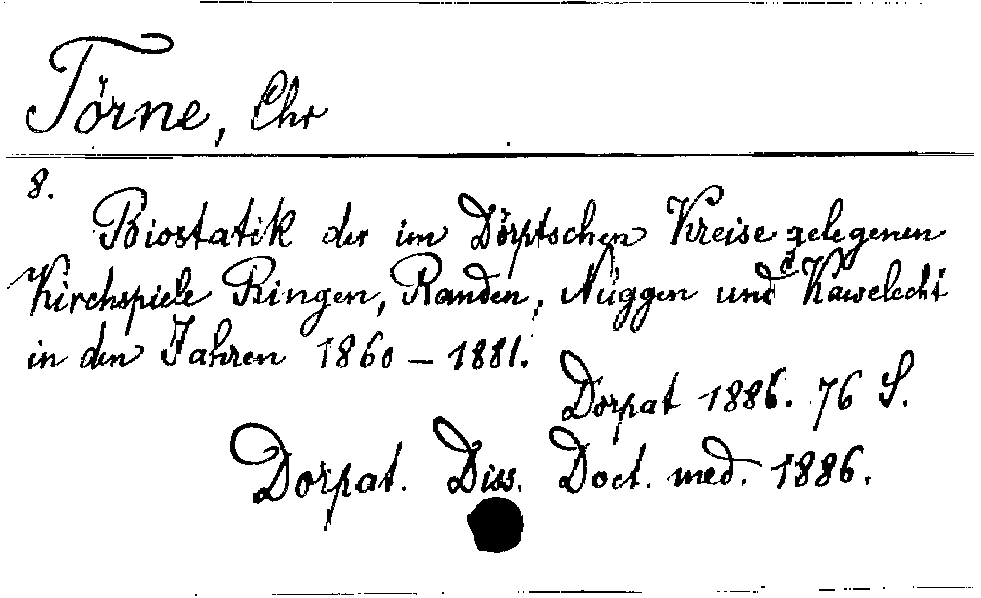 Törne, Chr
8.
Biostatik der im Dörptschen Kreise gelegenen
Kirchspiele Ringen, Randen, Nüggen und Kawelecht
in den Jahren 1860 – 1881.
Dorpat 1886. 76 S.
Dorpat. Diss. Doct. med. 1886.